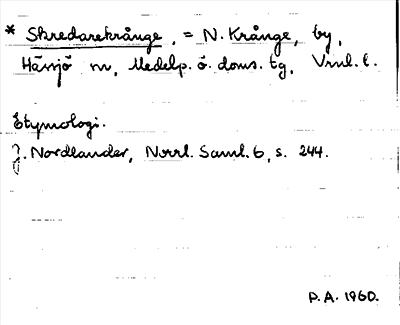 * Skredarekrånge, = N. Krånge, by,
Hässjö sn, Medelp. ö. doms. tg, Vrnl. l.
Etymologi.
J. Nordlander, Norrl. Saml. 6, s. 244.
P.A. 1960.